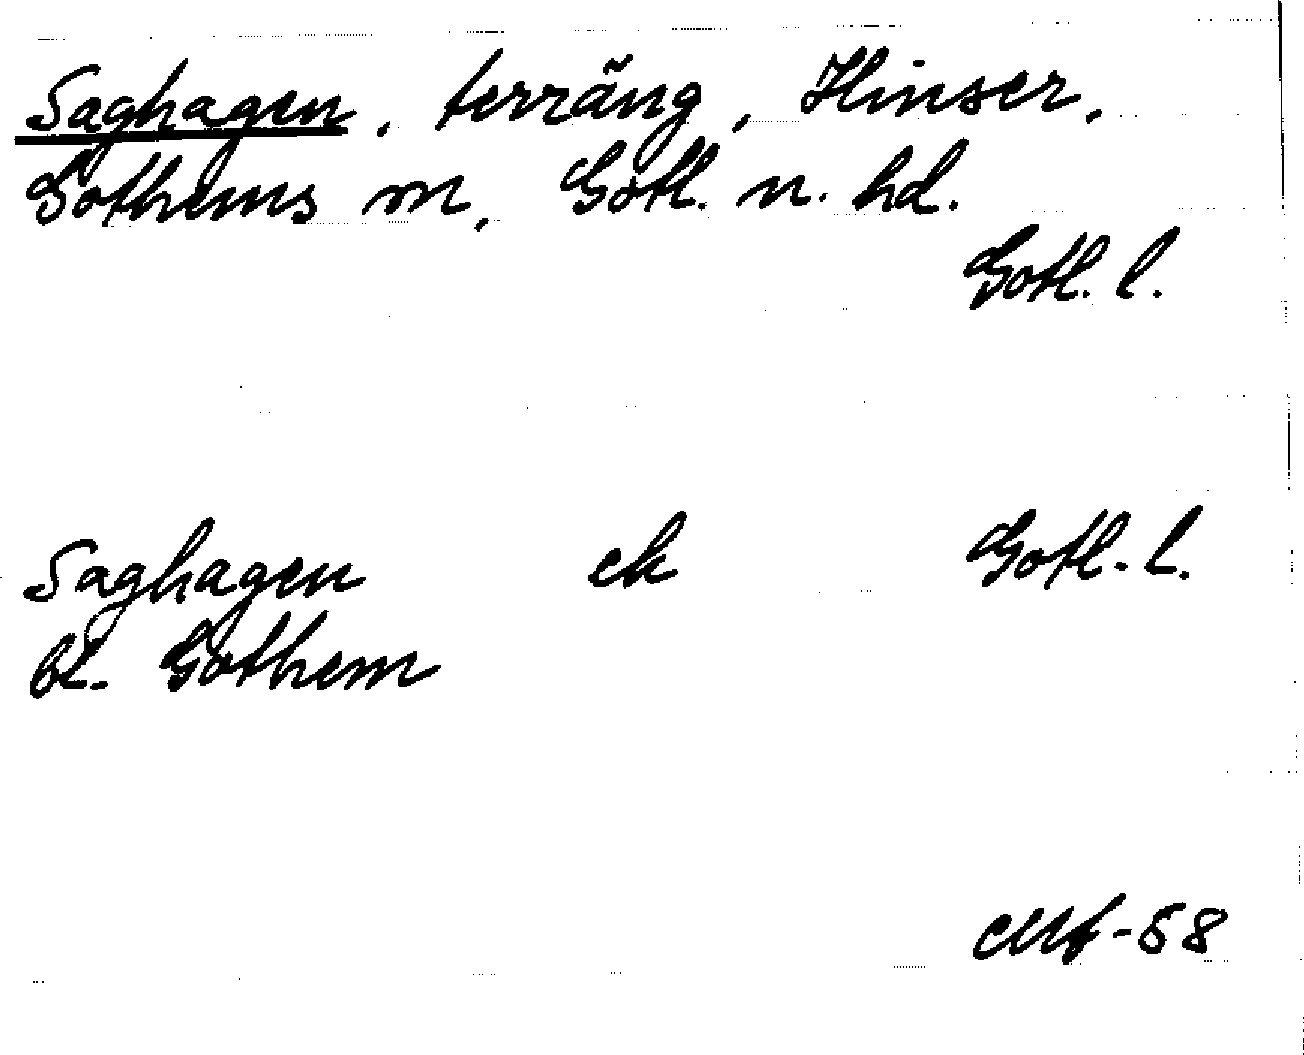 Saghagen, terräng, Hinser,
Gothems sn, Gotl. n. hd.
Gotl. l.
Saghagen ek Gotl. l.
bl. Gothem
-68